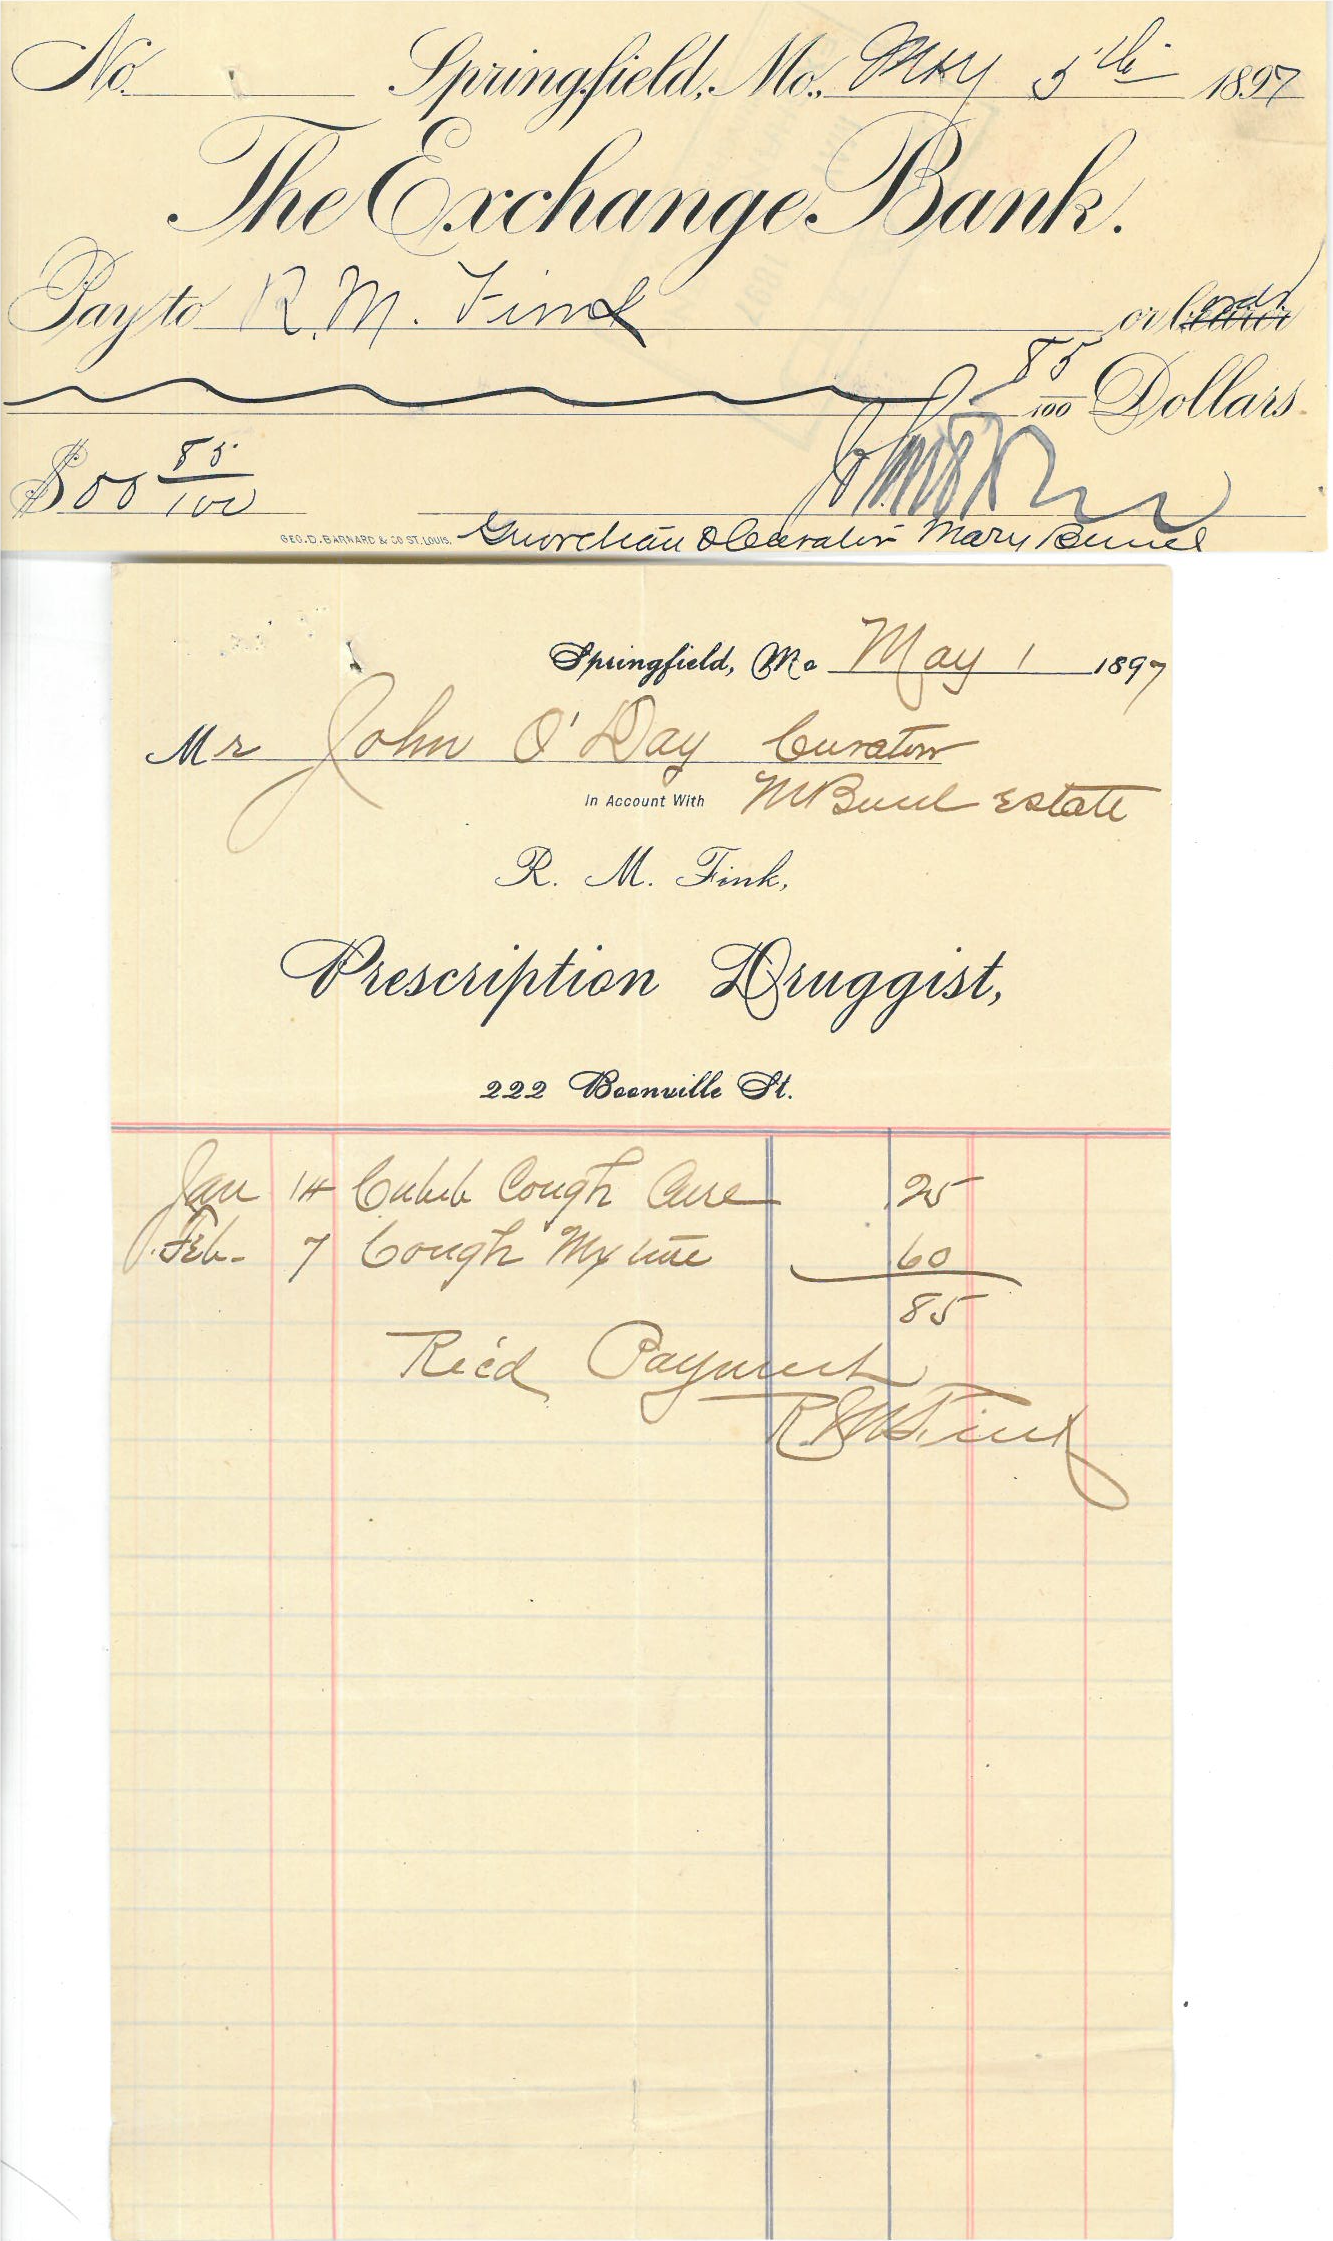 No. Springfield, Mo., May 5th 1897
The Exchange Bank.
Pay to R. M. Fink or order
85/100 Dollars.
$ 00 85/100
GEO. D. BARNARD & CO ST. LOUIS.
Guardian & Curator Mary
Springfield, Mo May 1 1897
Mr John O'Day Curator
In Account With M Estate
R. M. Fink,
Prescription Druggist,
222 Boonville St.
Jan 14 Cubeb Cough Cure 25
Feb. 7 Cough Mixture 60
85
Rec'd Payment
R M Fink